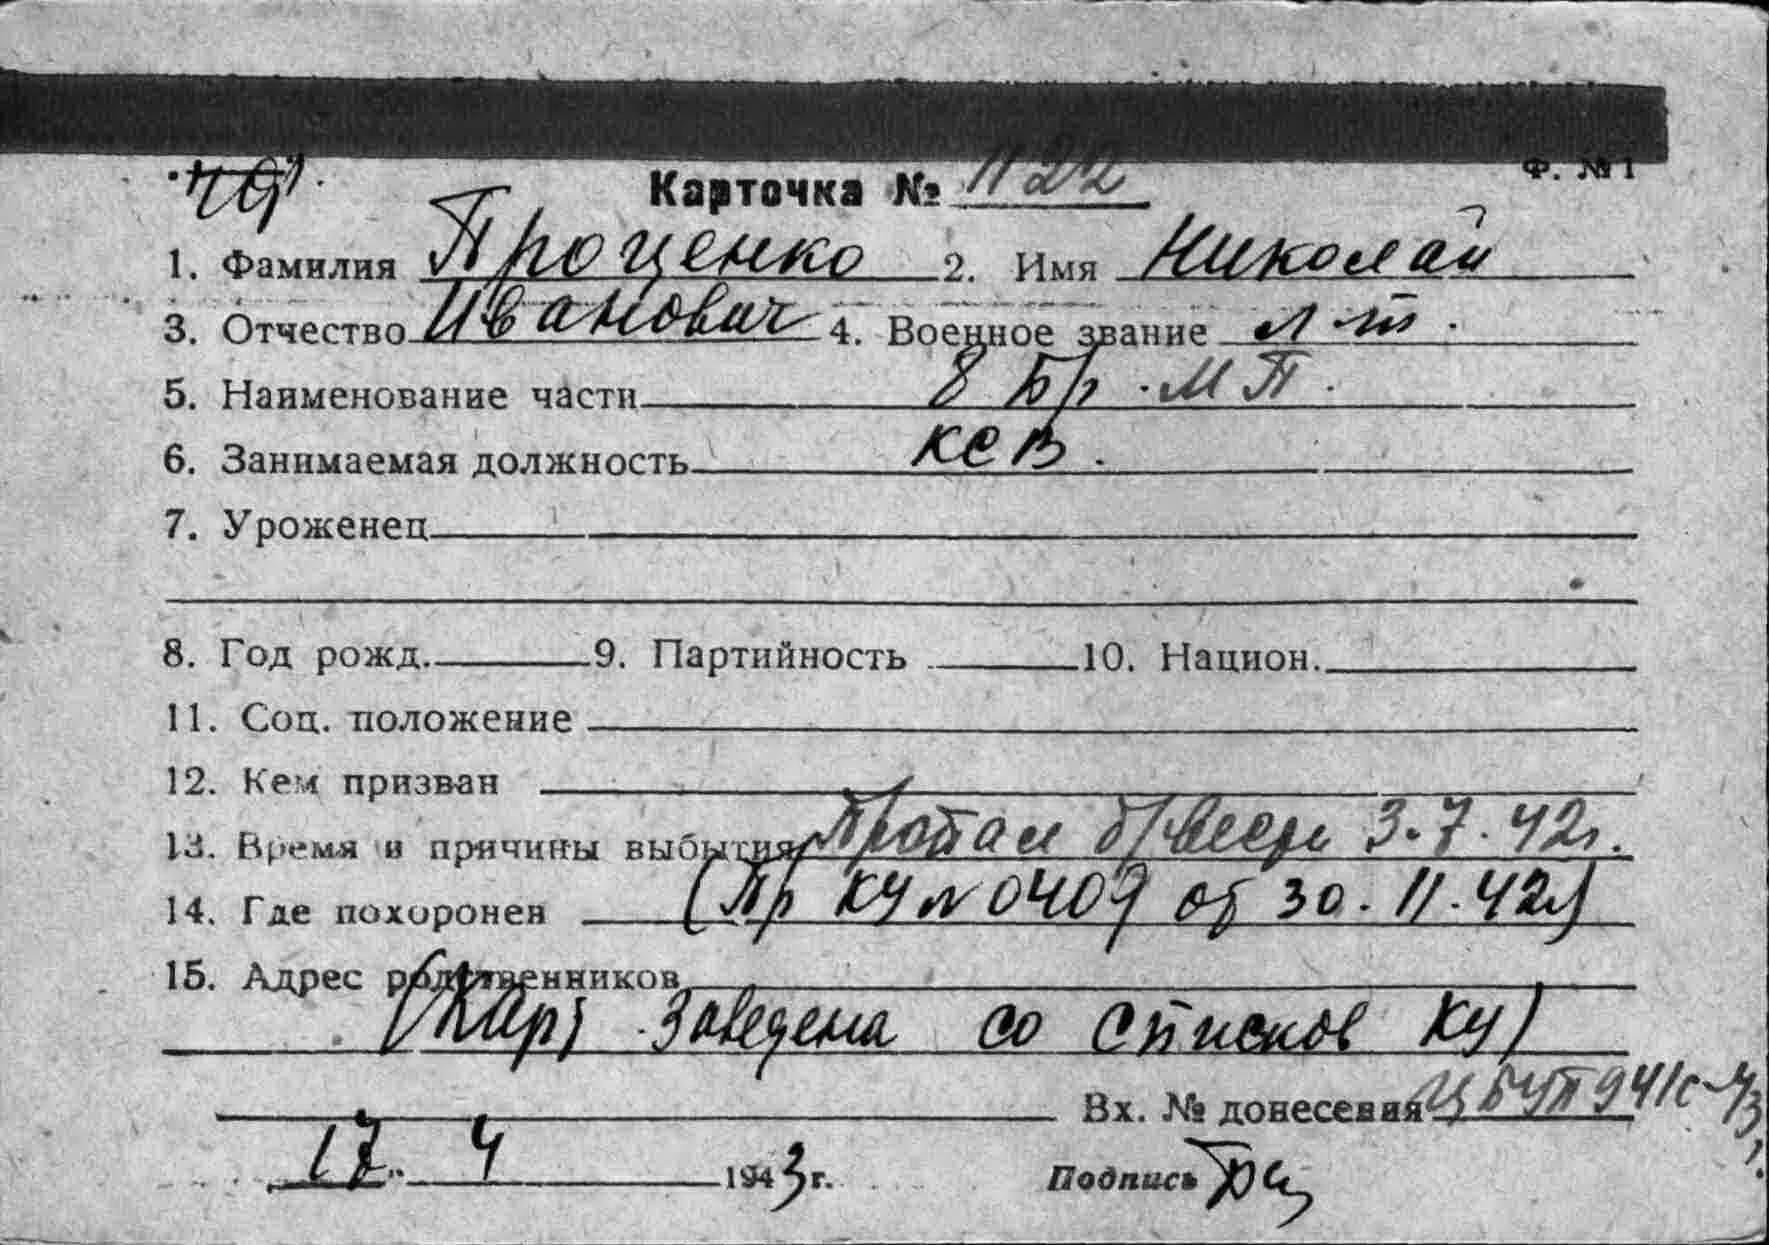 Ф. №1
Карточка № 1122
1. Фамилия Проценко 2. Имя Николай
3. Отчество Иванович 4. Военное звание л-т.
5. Наименование части 8 Бр. МП.
6. Занимаемая должность КСВ.
7. Уроженец
8. Год рожд. 9. Партийность 10. Национ.
11. Соц. положение
12. Кем призван
13. Время и причины выбытия Пропал б/вести 3.7.42г.
14. Где похоронен (Пр КЧ № 0409 от 30.11.42г)
15. Адрес родственников
(Карт заведена со списков КЧ)
Вх. № донесения
17 4 1943 г. Подпись